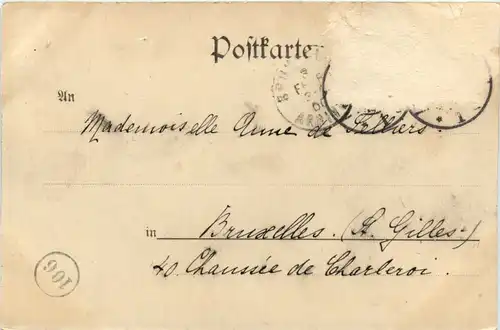 Postkarte
An
Mademoiselle Anne de
in Bruxelles. (St. Gilles-)
40 Chaussée de Charleroi.
106